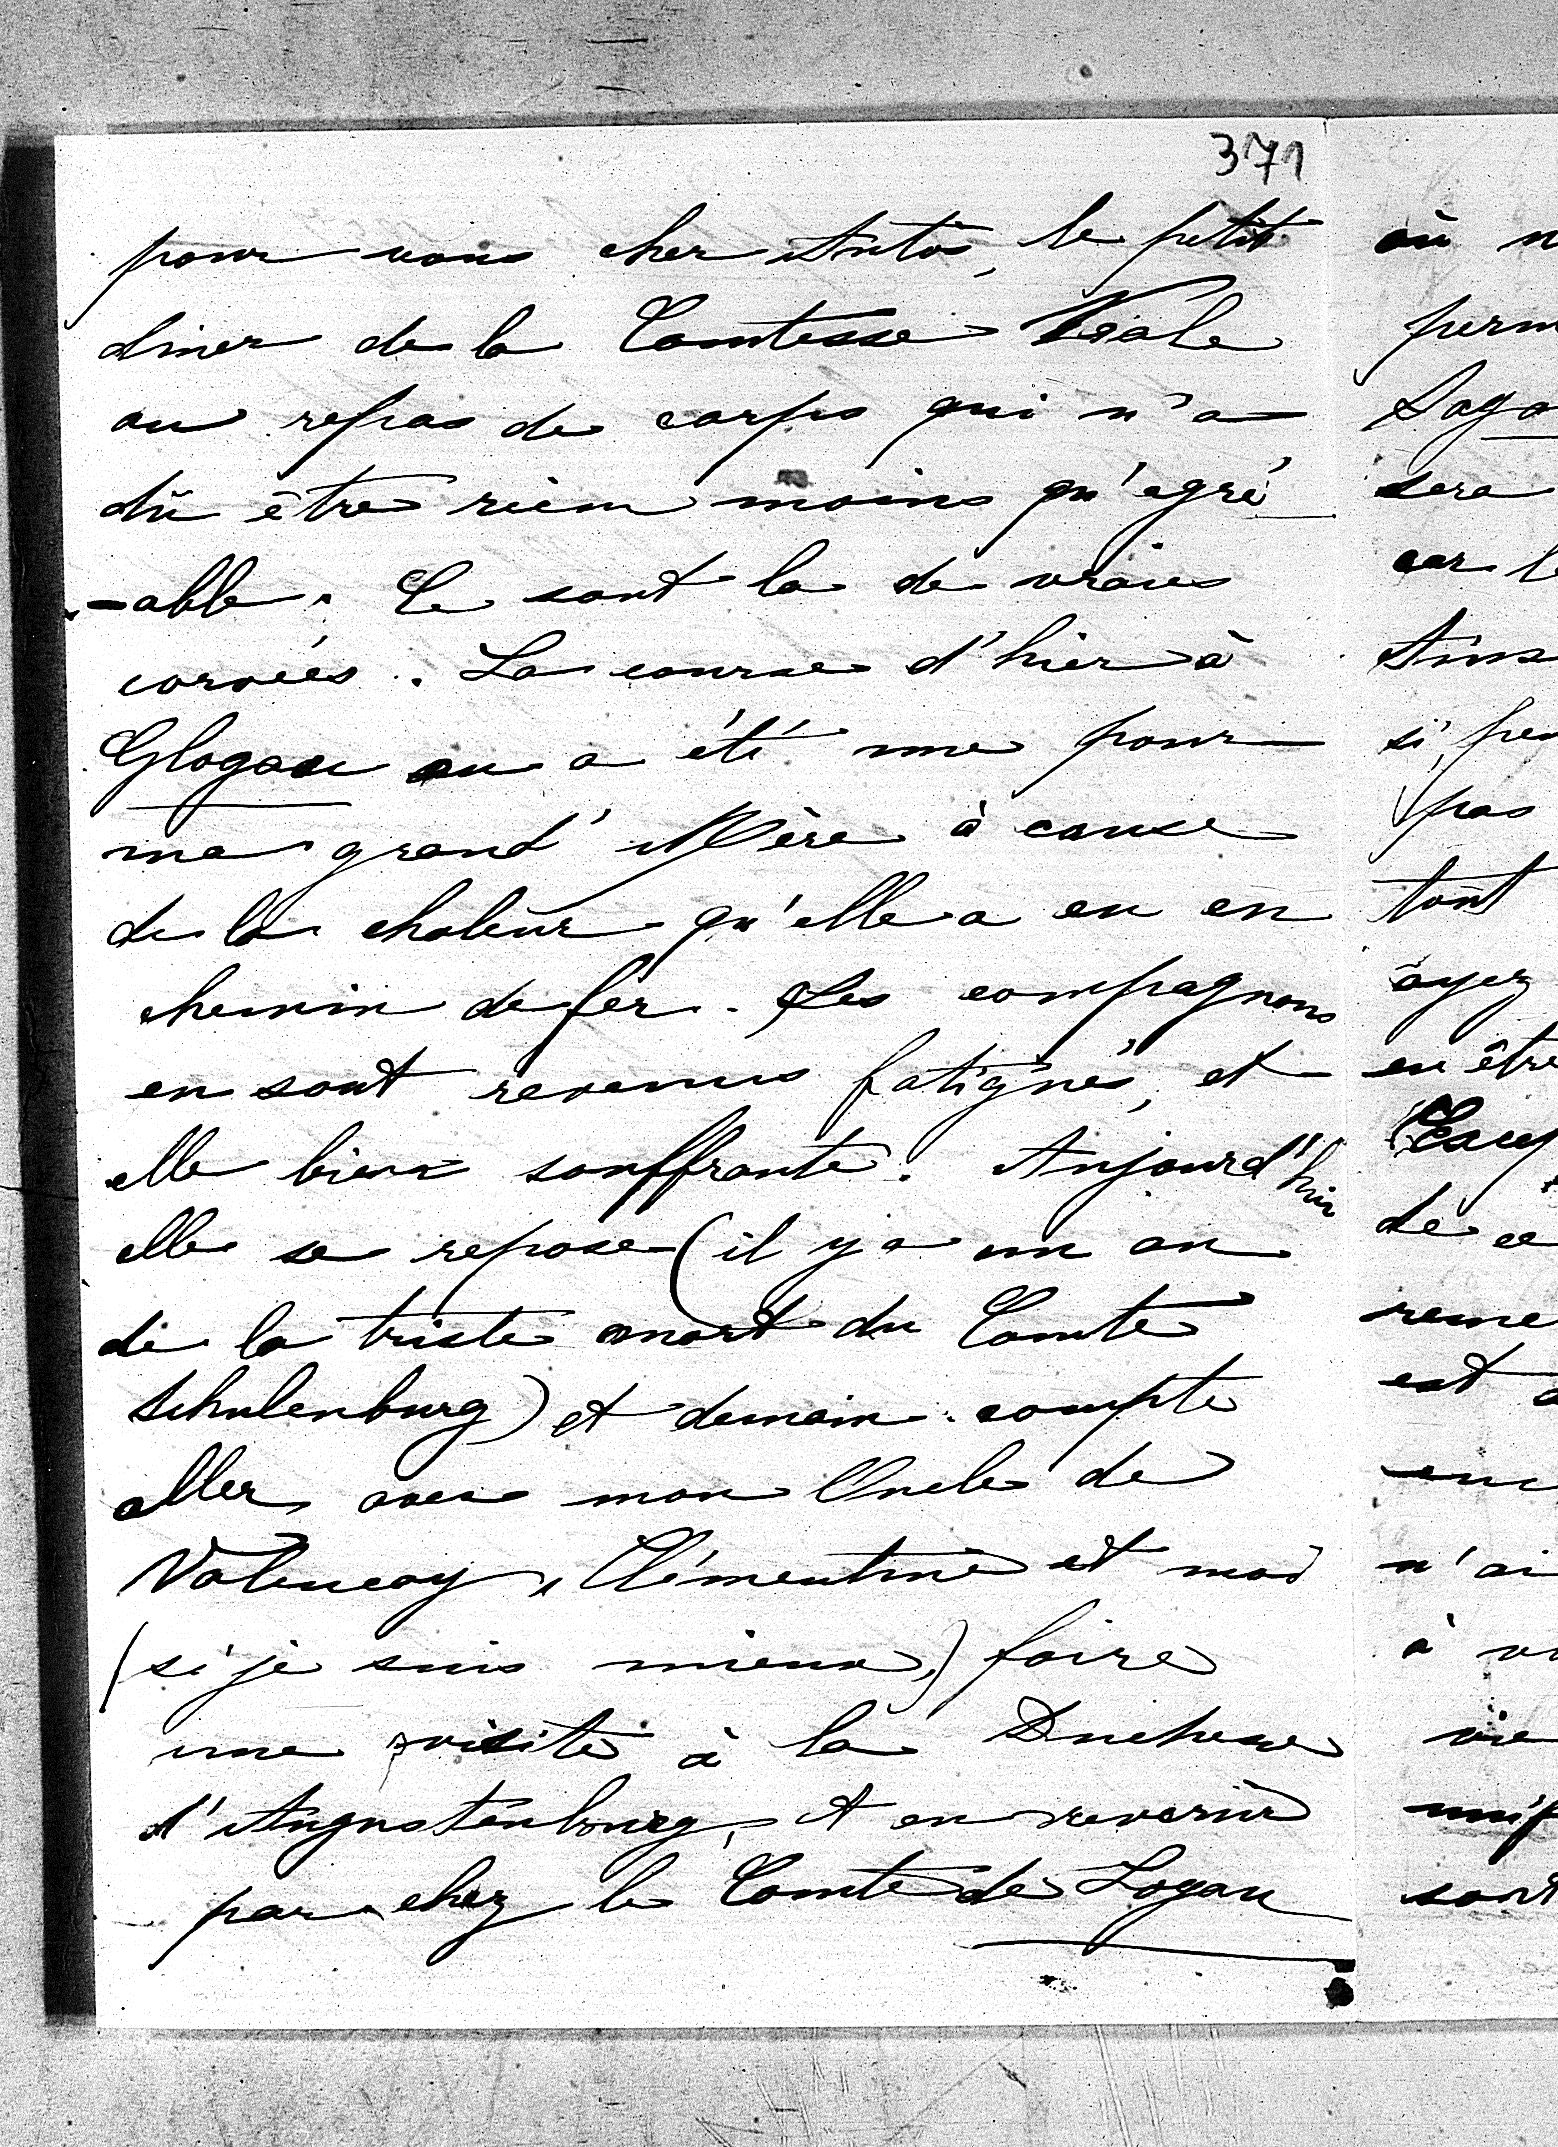 371
pour vous cher Antós, le petit
diner de la Comtesse Viale
au repas de corps qui n'a
dû être rien moins qu'agré
-able. Ce sont la de vraies
corvées. La course d'hier à
Glogau en a été une pour
ma grand' Mère à cause
de la chaleur qu'elle a eu en
chemin de fer. Les compagnons
en sont revenus fatignés, et
elle bien souffrante. Aujourd'hui
elle se repose (il y a un an
de la triste mort du Comte
Schulenburg) et demain compte
aller avec mon Oncle de
Valencay, Clémentine et moi
(si je suis mieux,) faire
une visite à la Duchesse
d'Augustenbourg, et en revenir
par chez le Comte de Logau
où
sera
car
si
pas
tout
ayez
en être
de ce
est
n'ai
à
vie
sont